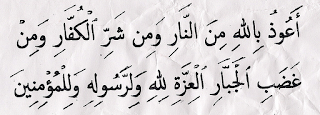 أَعُوذُ بِاللهِ مِنَ النَّارِ وَمِن شَرِّ ٱلْكُفَّارِ وَمِنْ
غَضَبِ ٱلْجَبَّارِ ٱلْعِزَّةِ لِلهِ وَلِرَسُولِهِ وَلِلْمُؤْمِنِينَ